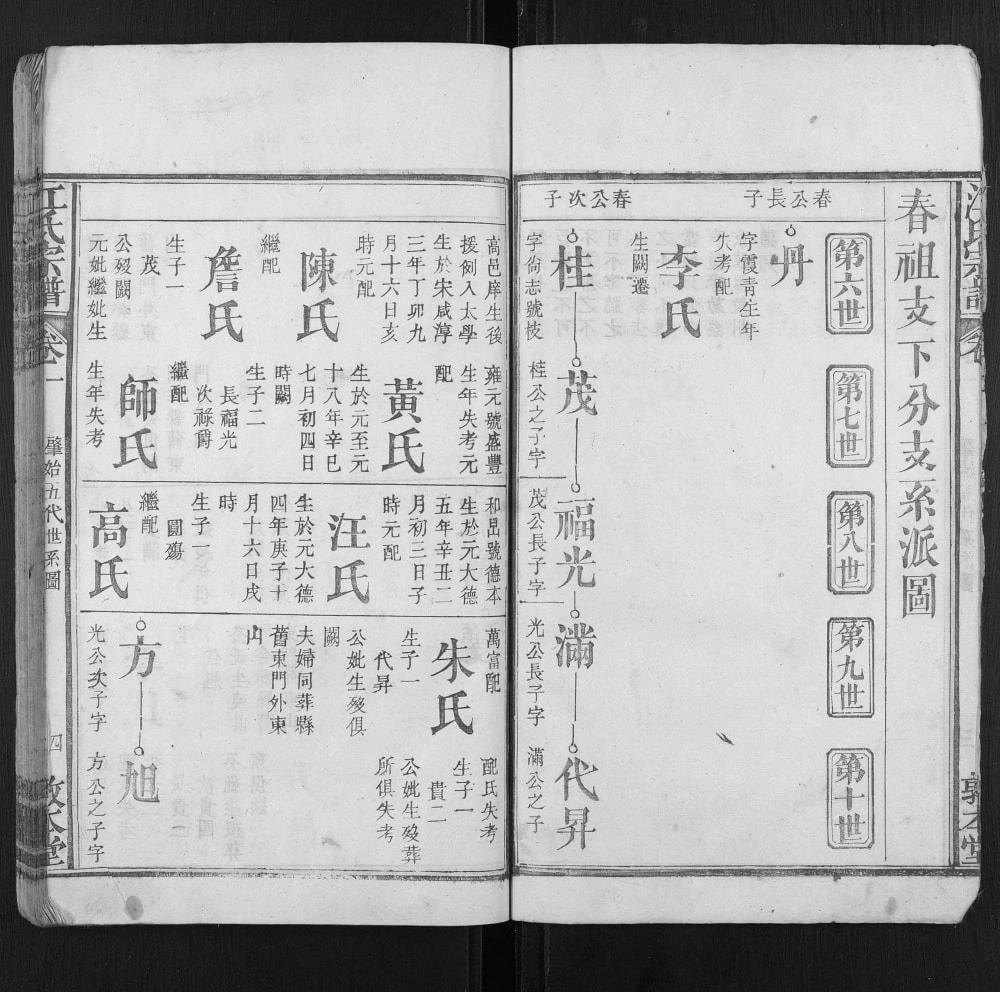 春祖支下分支系派圖
第六世
第七世
第八世
第九世
第十世
春公長子
丹
字霞青生年
失考配
李氏
生闕遷
春公次子
桂
茂
福光
滿
代昇
字尚志號枝
桂公之子字
茂公長子字
光公長子字
滿公之子
高邑庠生後
援例入太學
生於宋咸淳
三年丁卯九
月十六日亥
時元配
陳氏
繼配
詹氏
生子一
茂
公歿闕
元妣繼妣生
雍元號盛豐
生年失考元
配
黃氏
生於元至元
十八年辛巳
七月初四日
時闕
生子二
長福光
次祿爵
繼配
師氏
生年失考
和號德本
生於元大德
五年辛丑二
月初三日子
時元配
汪氏
生於元大德
四年庚子十
月十六日戌
時
生子一
圓殤
繼配
高氏
萬富配
朱氏
生子一
代昇
公妣生歿俱
闕
夫婦同葬縣
舊東門外東
山
方
光公次子字
配氏失考
生子一
貴二
公妣生歿葬
所俱失考
旭
方公之子字
江氏宗譜
卷一
肇始五代世系圖
四
敦本堂